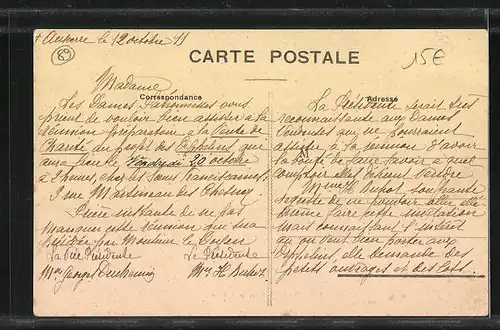 Auxerre le 12 octobre 11
89
15€
CARTE POSTALE
Correspondance
Adresse
Madame
Les Dames Patronnesses vous
prient de vouloir bien assister à la
réunion préparatoire à la Vente de
Charité au profit des Orphelins que
aura lieu le Vendredi 20 octobre
à 2 heures, chez les Sœurs Franciscaines,
1 rue Martineau des Chesnez
Prière instante de ne pas
manquer cette réunion que sera
présidée par Monsieur le Doyen
La Vice Présidente La Présidente
Mme Georges Mme H.
La Présidente serait très
reconnaissante aux Dames
vendeuses qui ne pourraient
assister à la réunion d'avoir
la bonté de faire savoir à quel
comptoir elles désirent vendre
Mme H. souffrante
regrette de ne pouvoir aller elle
même faire cette invitation
mais connaissant l'intérêt
qu'on veut bien porter aux
orphelins, elle demande des
petits ouvrages et des lots.